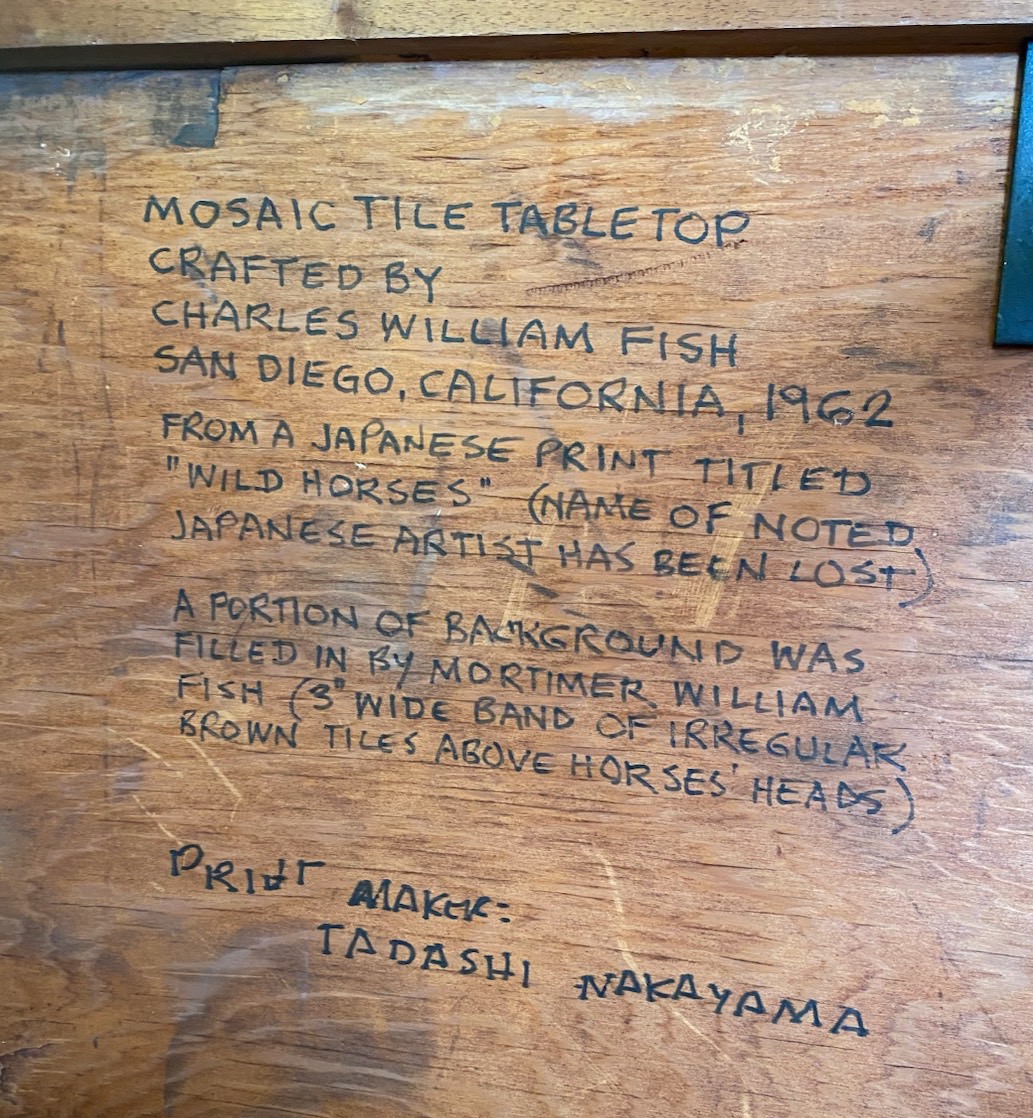 MOSAIC TILE TABLETOP
CRAFTED BY
CHARLES WILLIAM FISH
SAN DIEGO, CALIFORNIA, 1962
FROM A JAPANESE PRINT TITLED
"WILD HORSES" (NAME OF NOTED
JAPANESE ARTIST HAS BEEN LOST)
A PORTION OF BACKGROUND WAS
FILLED IN BY MORTIMER WILLIAM
FISH (3" WIDE BAND OF IRREGULAR
BROWN TILES ABOVE HORSES' HEADS)
PRINT MAKER:
TADASHI NAKAYAMA